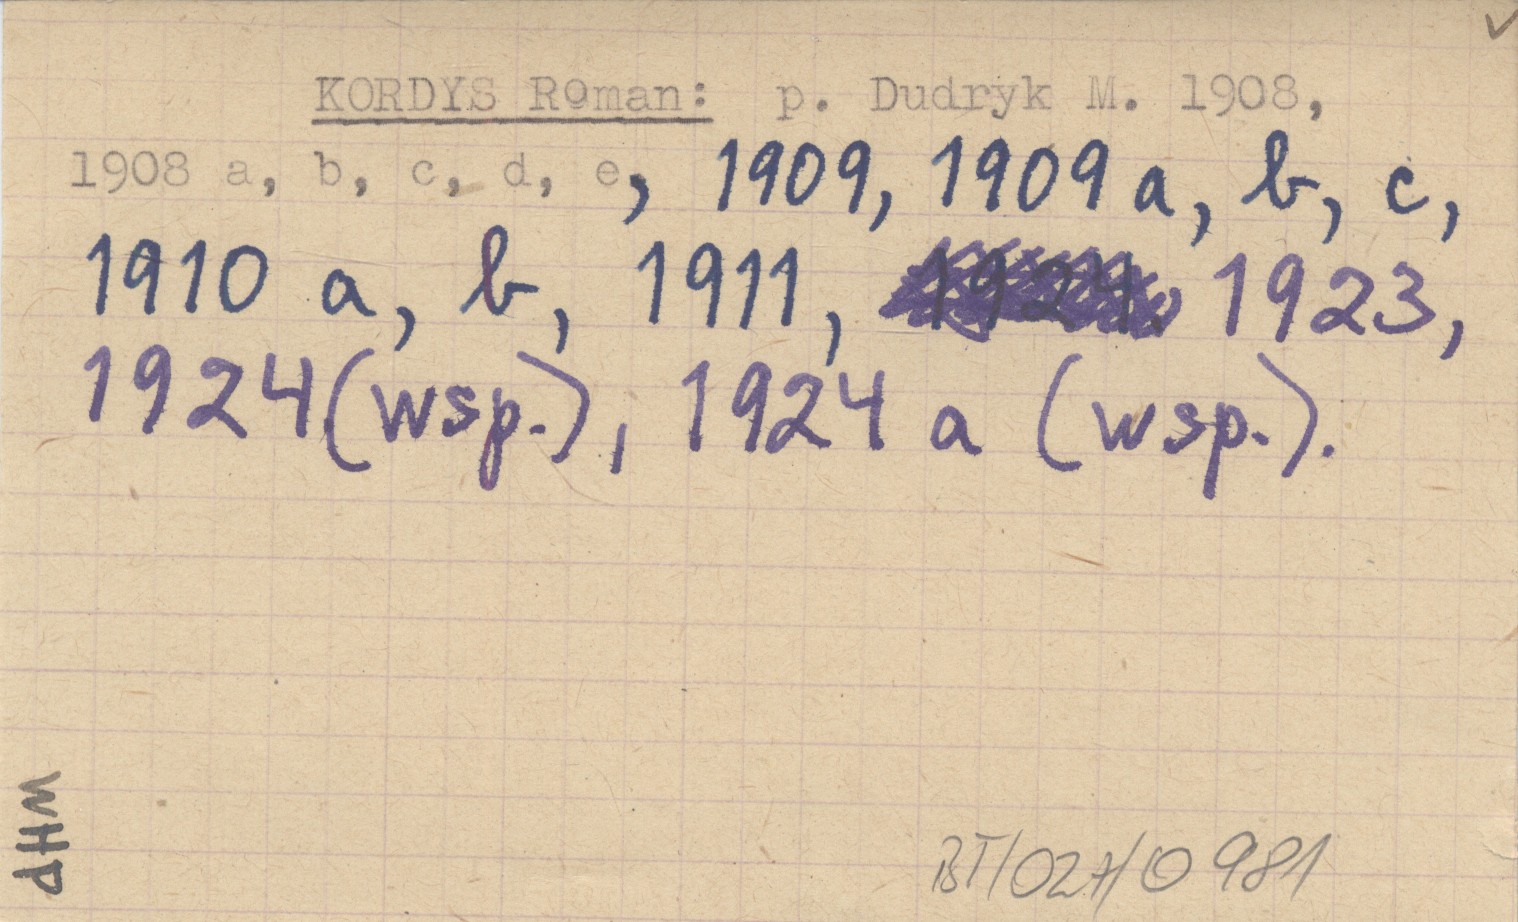 KORDYS Roman: p. Dudryk M. 1908,
1908 a, b, c, d, e, 1909, 1909 a, b, c,
1910 a, b, 1911, 1923,
1924 (wsp.), 1924 a (wsp.).
WHP
BT/027/0981